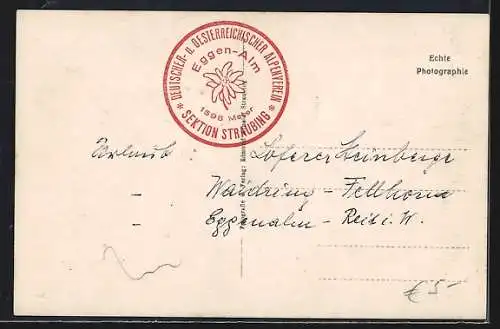 DEUTSCHER- u. OESTERREICHISCHER ALPENVEREIN
Eggen-Alm
1596 Meter
* SEKTION STRAUBING *
Echte
Photographie
Urlaub Loferer Steinberge
- Waidring - Fellhorn
- Eggenalm - Reit i. W.
Verlag:
€ 5-